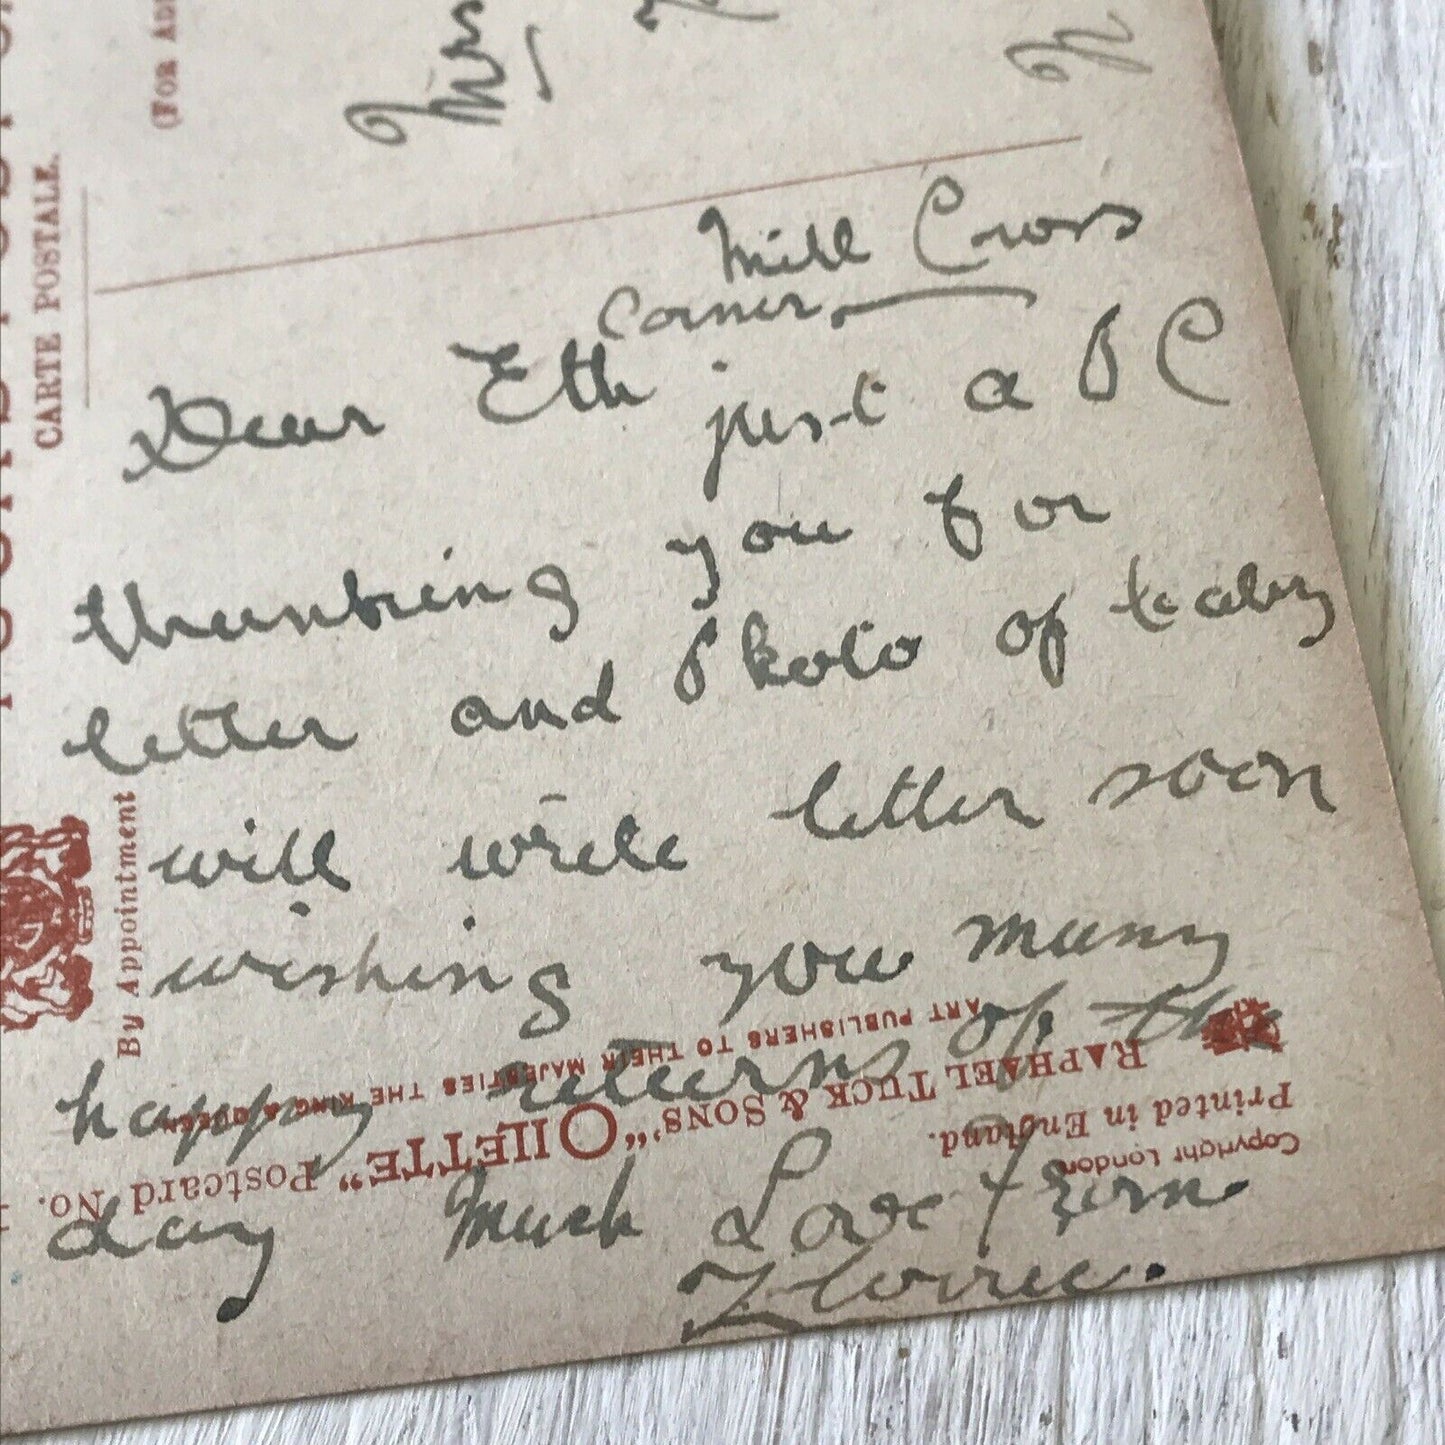 CARTE POSTALE.
(FOR AD
Mrs
Mill Cross
Corner
Dear Eth just a PC
thanking you for
letter and Photo of baby
will write letter soon
wishing you many
happy returns of the
day Much Love from
Florrie.
By Appointment
RAPHAEL TUCK & SONS' "OILETTE" Postcard No.
ART PUBLISHERS TO THEIR MAJESTIES THE KING & QUEEN
Printed in England.
Copyright London